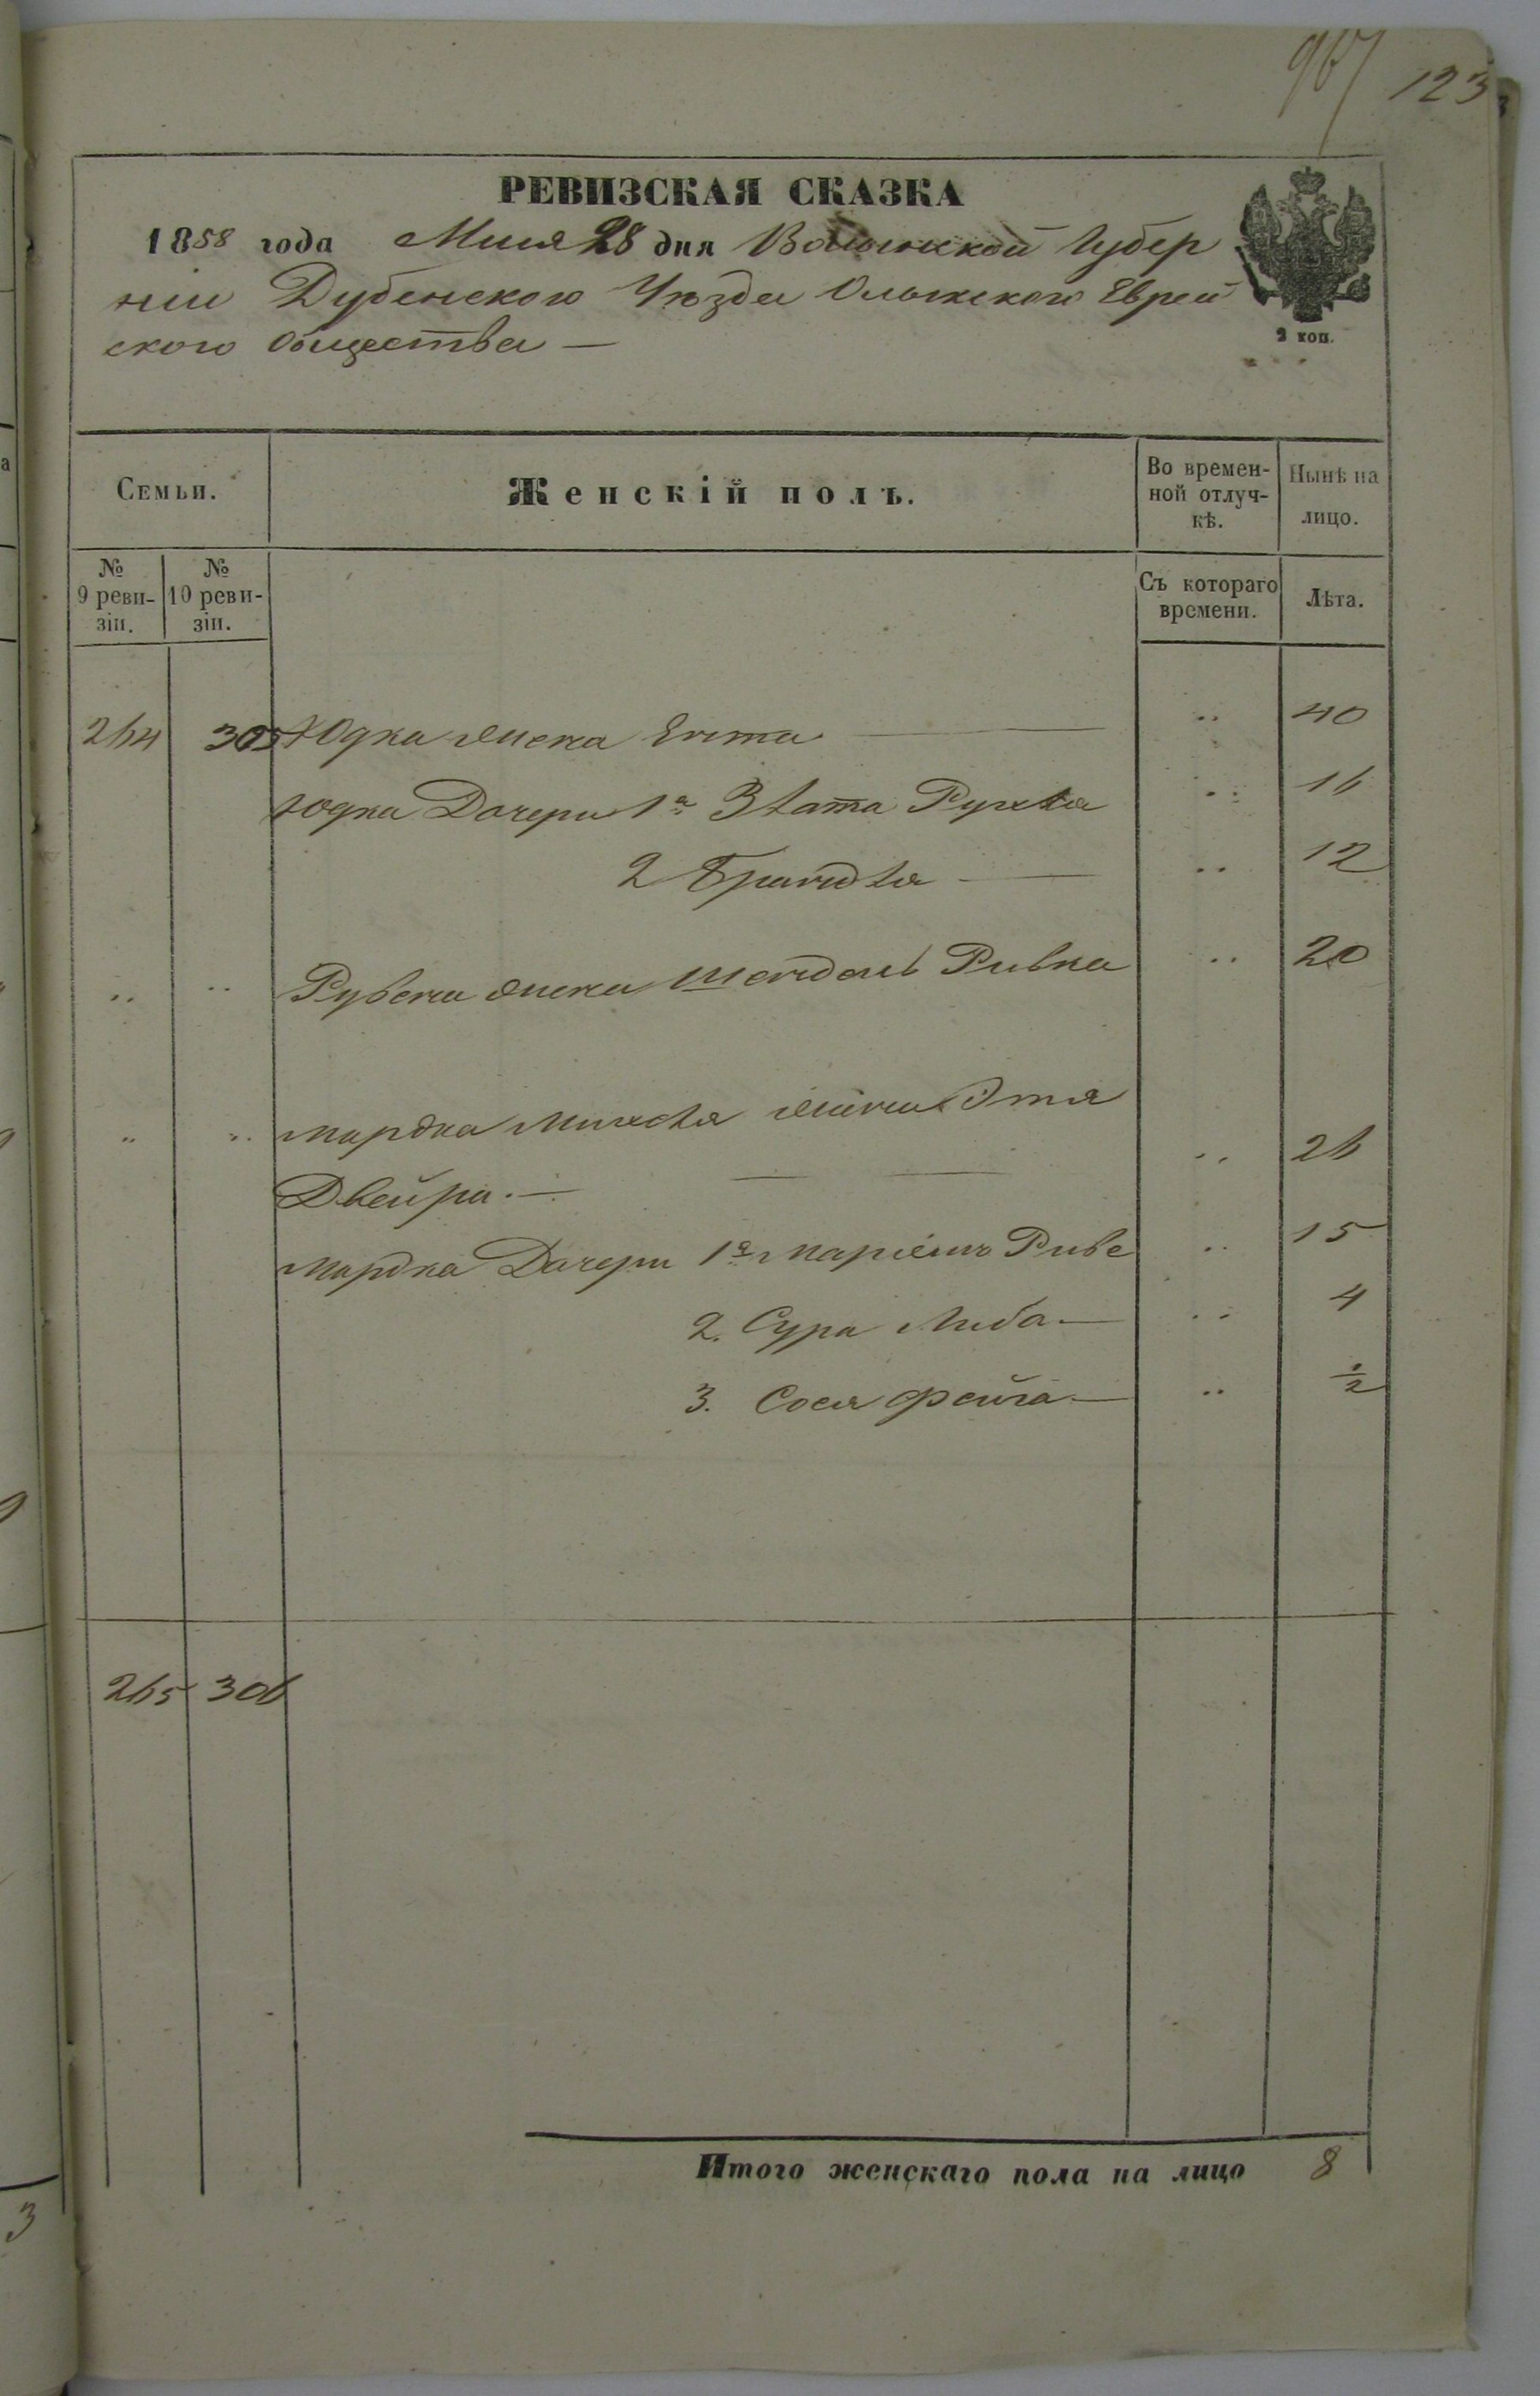 123
РЕВИЗСКАЯ СКАЗКА
1858 года Маия 28 дня Волынской Губер
ніи Дубенского Уѣзда Олыкского Еврей
ского Общества —
2 коп.
Семьи.
Женскій полъ.
Во времен-
ной отлуч-
кѣ.
Нынѣ на
лицо.
№
9 реви-
зіи.
№
10 реви-
зіи.
Съ котораго
времени.
Лѣта.
264 305 Юдка жена Ента — .. 40
Юдка Дочери 1я Злата Рухля .. 16
2 Брандля — .. 12
.. .. Рубена жена Шендель Ривка .. 20
.. .. Мордка Михеля жена Этя
Двейра. — .. 26
Мордка Дочери 1я Маріемъ Риве .. 15
2. Сура Либа — .. 4
3. Сося Фейга — .. 1/2
265 306
Итого женскаго пола на лицо 8
3